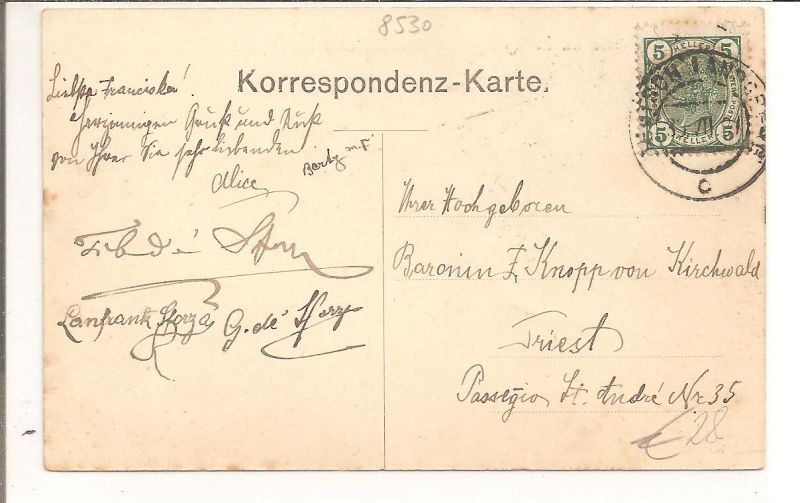 8530
Korrespondenz-Karte.
Liebste Franciska!
Herzinnigen Gruß und Kuß
von Ihrer Sie sehr liebenden
Alice
Lanfrank Sforza
G. de
5 5
HELLER
5 5
HELLER
C
Ihrer Hochgeboren
Baronin F. Knopp von Kirchwald
Triest
Passegio St. André Nr 35
28